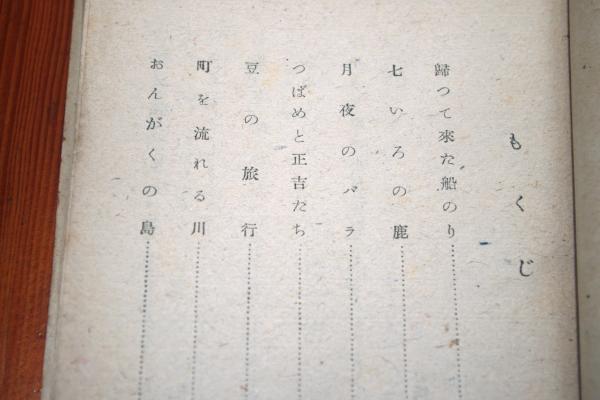 もくじ
歸つて來た船のり
七いろの鹿
月夜のバラ
つばめと正吉たち
豆の旅行
町を流れる川
おんがくの島